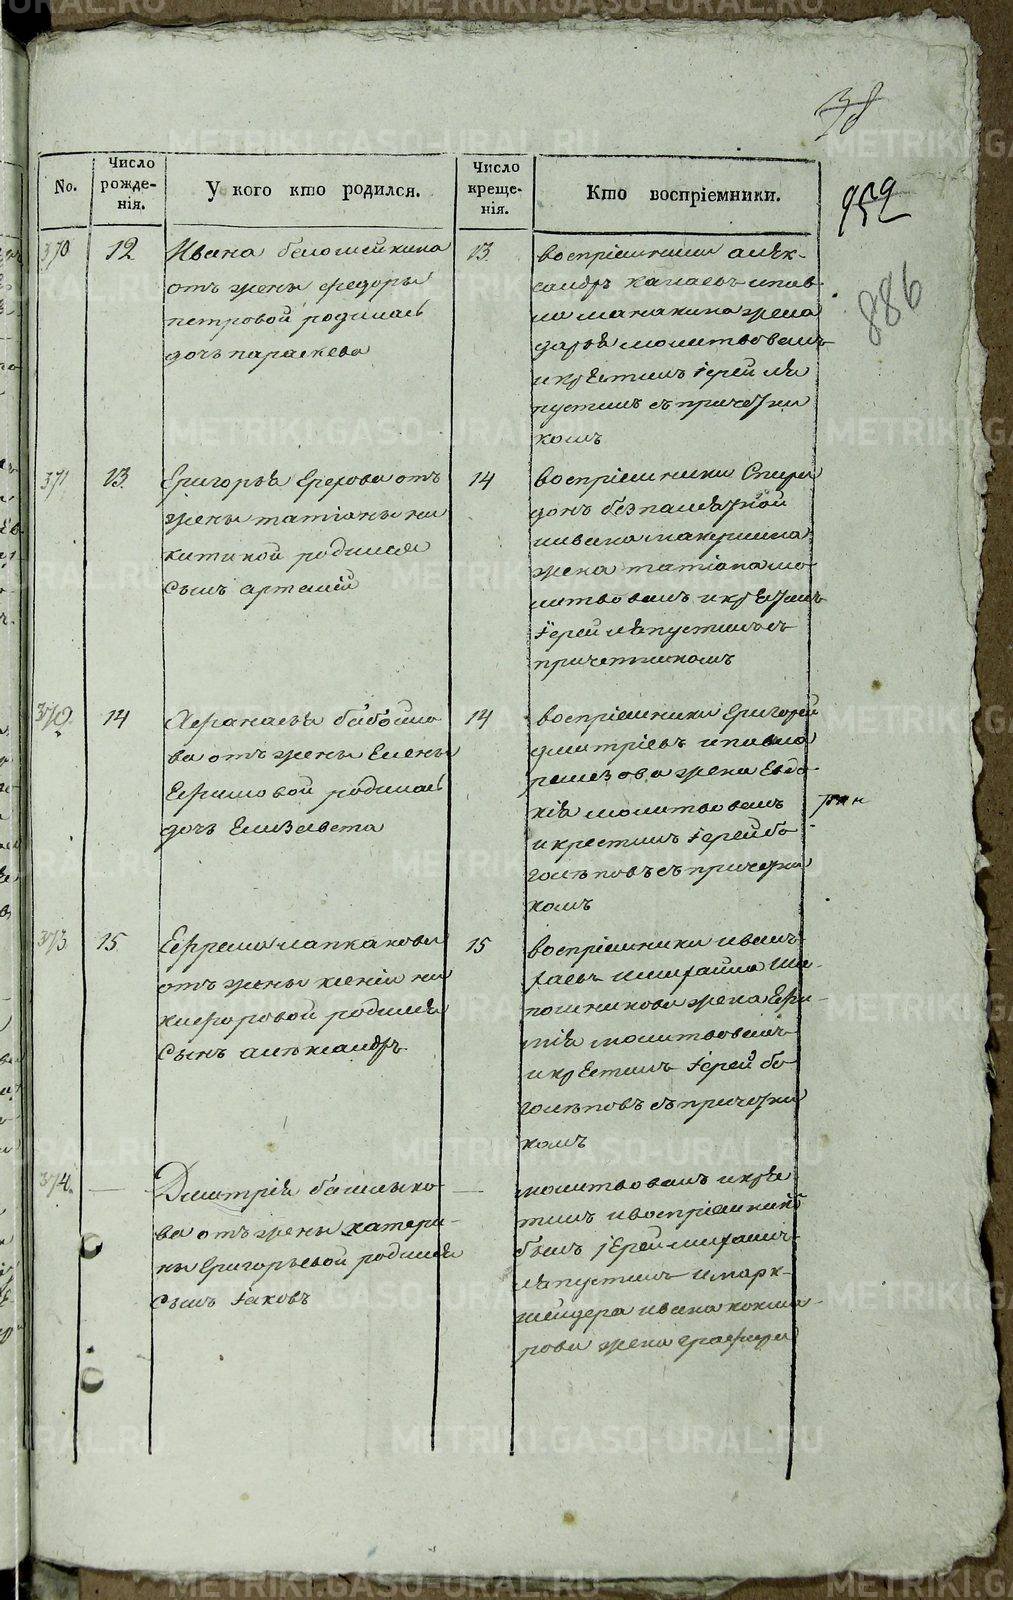 38
952
886
No.
Число рожде-нія.
У кого кто родился.
Число креще-нія.
Кто воспріемники.
370
12
Ивана белошейкина
отъ жены федоры
петровой родилась
дочь параскева
13
воспріемники алек-
сандръ каплаевъ и пав-
ла манакина жена
дарья молитвовалъ
и крѣстилъ іерей лѣ
пустинъ съ причетни
комъ
371
13
Григорья Ерехова отъ
жены татіаны ни
китиной родился
сынъ артемій
14
воспріемники Спири
донъ безпамятной
и ивана макушина
жена татіана мо
литвовалъ и крѣстилъ
іерей лѣпустинъ съ
причетникомъ
372
14
Афанасья бабойло
ва отъ жены Елены
Ефимовой родилась
дочь Елизавета
14
воспріемники Григорей
дмитріевъ и павла
ремезова жена Евдо-
кія молитвовалъ
и крестилъ іерей бо
голѣповъ съ причетни
комъ
373
15
Ефрема лапкакова
отъ жены ксеніи ни
кифоровой родился
сынъ александръ
15
воспріемники иванъ
и михайла Ша
пошникова жена Евфи-
мія молитвовалъ
и крѣстилъ іерей бо
голѣповъ съ причетни
комъ
374.
—
Дмитрія башлыко
ва отъ жены катери-
ны Григорьевой родился
сынъ іаковъ
—
молитвовалъ и крѣ
стилъ и воспріемникъ
былъ іерей михаилъ
лѣпустинъ и марк-
шейдера ивана кокша
рова жена глафира
METRIKI.GASO-URAL.RU